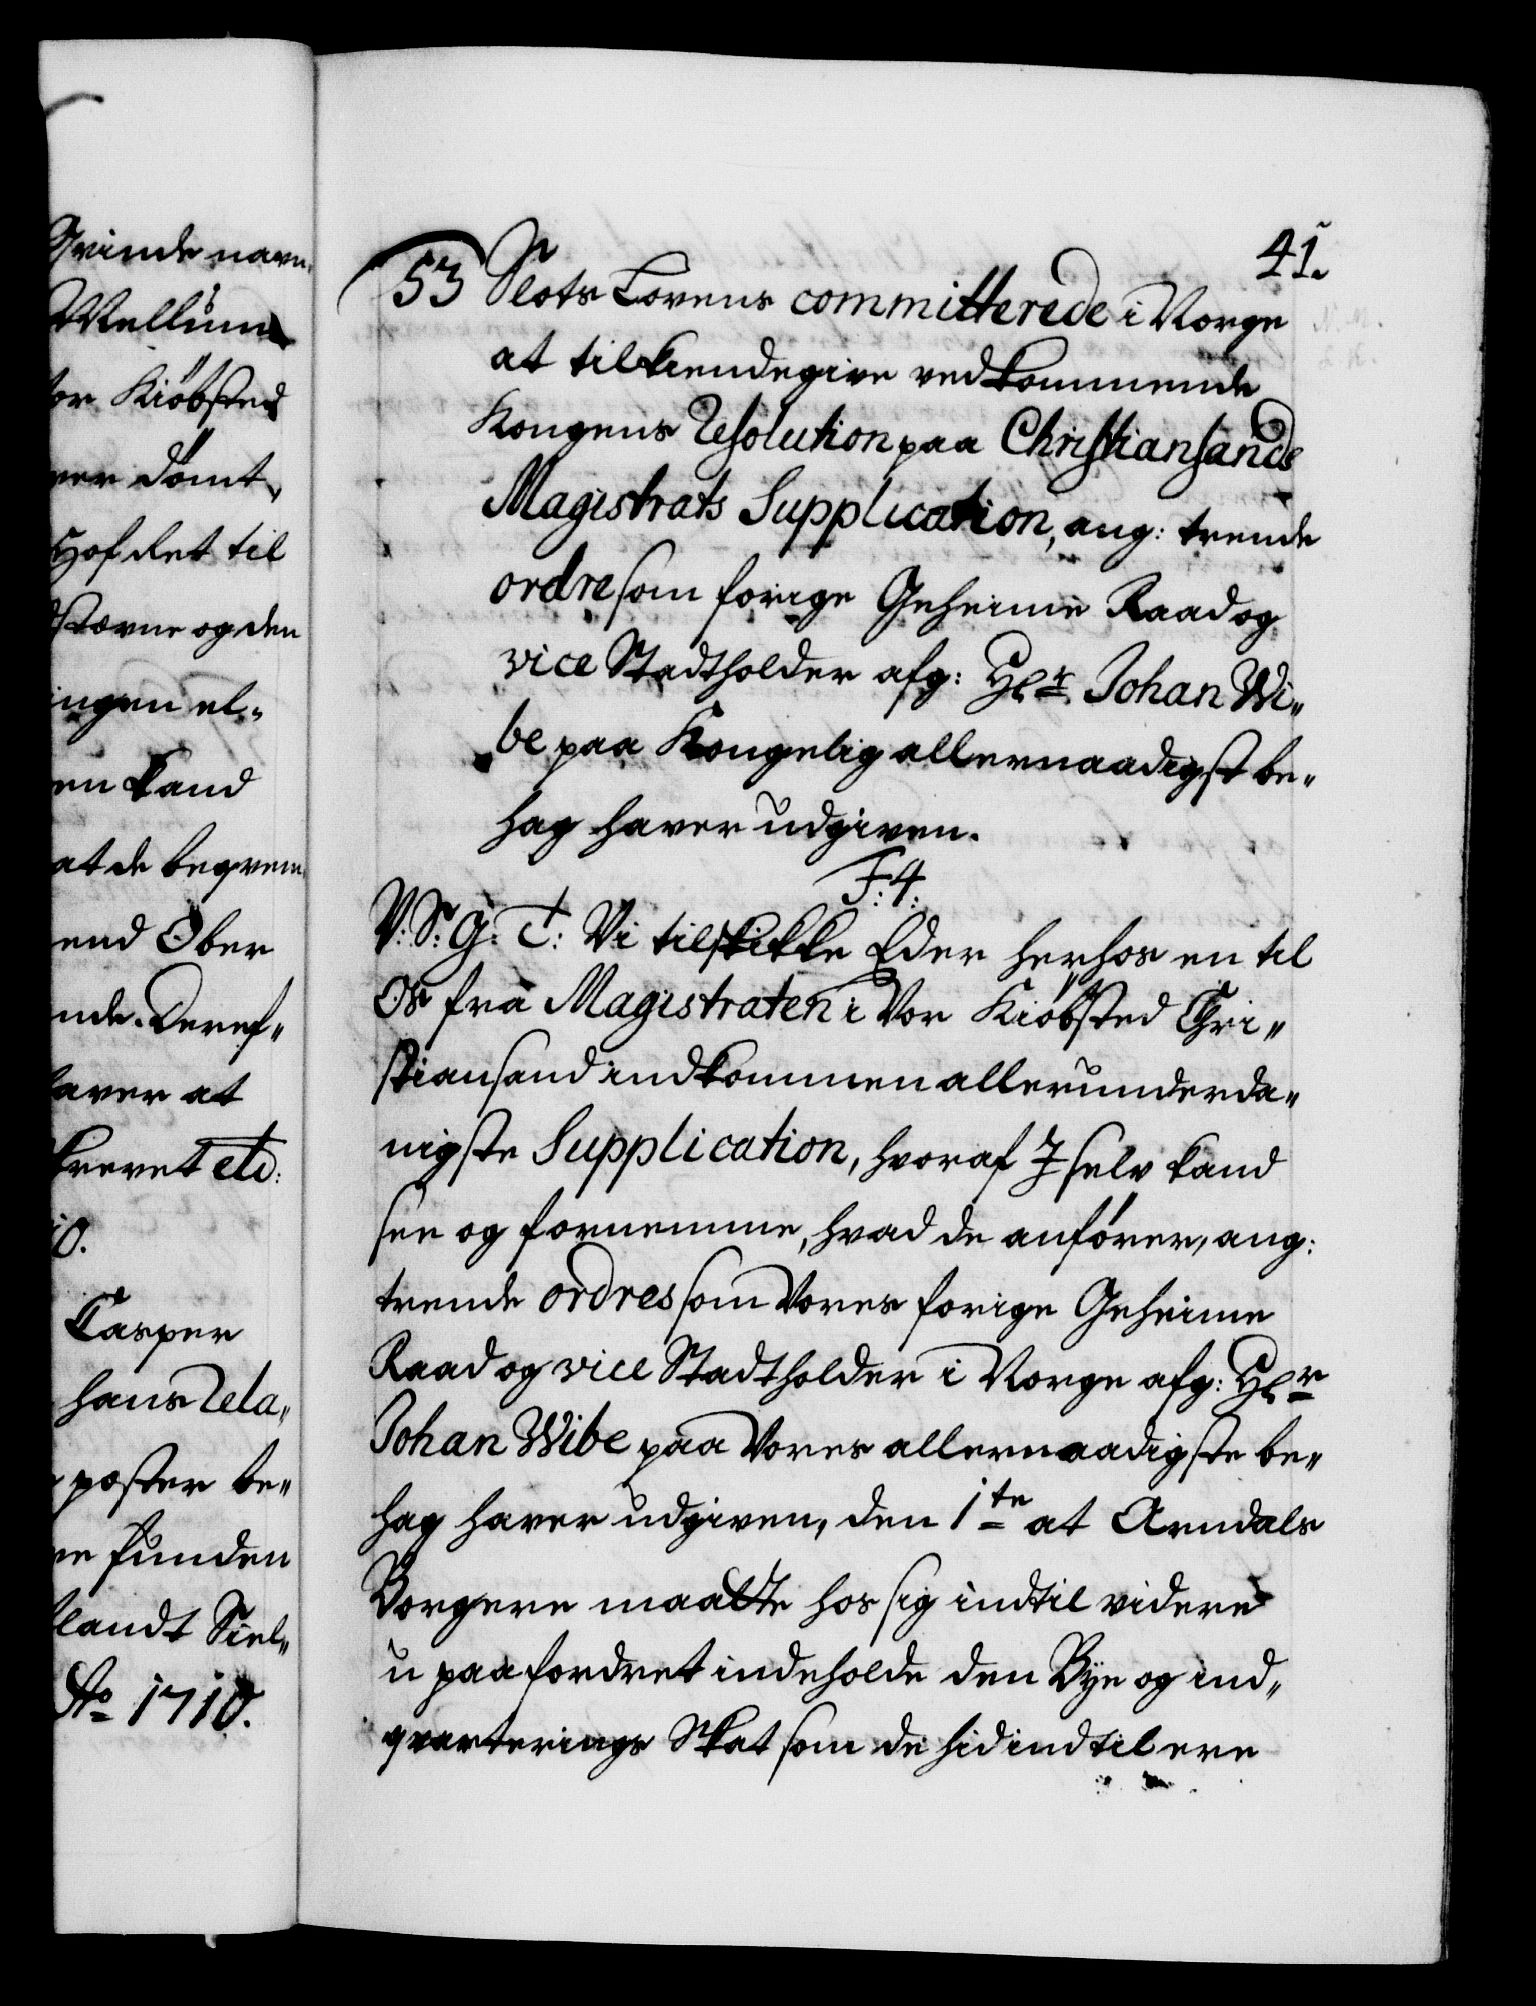 Qvinde navn.
Mellum
or Kiöbsted
ver dömt,
Hof Ret til
Stævne og den
ingen el„
en kand
at de beqvem
end Ober
nde. Deref„
haver at
krevet etc:
Casper
hans Rela„
poster be„
re funden
landt Siel„
Ao 1710.
41.
53 Slots Lovens committerede i Norge
at tilkiendegive vedkommende
Kongens Resolution paa Christiansands
Magistrats Supplication, ang: trende
ordre som forige Geheime Raad og
vice Stadtholder afg: Hr. Johan Wi„
be paa Kongelig allernaadigst be„
hag haver udgiven.
F:4:
V: S: G: T: Vi tilskikke Eder herhos en til
Os fra Magistraten i Vor Kiöbsted Chri„
stiansand indkommen allerunderda„
nigste Supplication, hvoraf I selv kand
see og fornemme, hvad de anförer, ang:
trende ordres som Vores forige Geheime
Raad og vice Stadtholder i Norge afg: Hr
Johan Wibe paa Vores allernaadigste be„
hag haver udgiven, den 1te at Arndals
Borgere maatte hos sig indtil videre
u paafordret indeholde den Bye og ind„
qvarterings Skat som de hid indtil ere